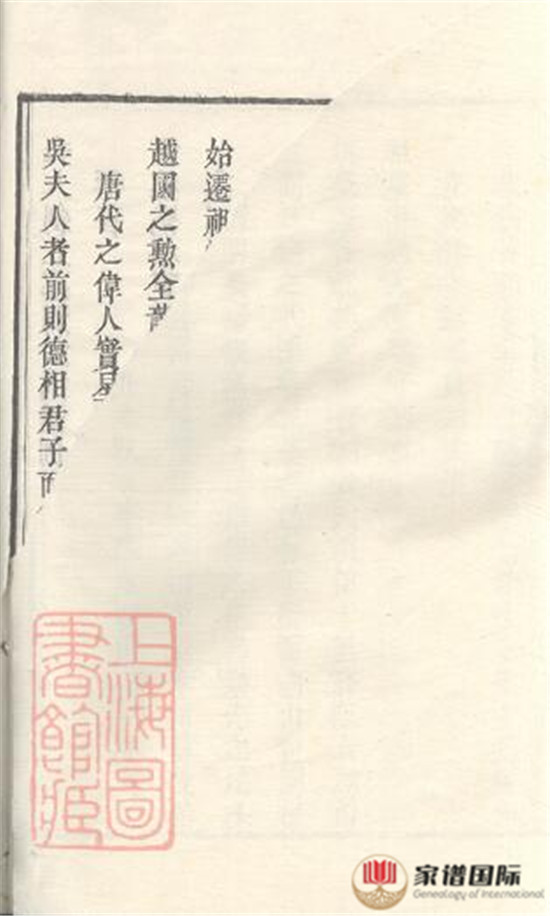 始遷神
越國之勲全
唐代之偉人實
吳夫人者前則德相君子
上海圖
書館藏
家谱国际
Genealogy of International